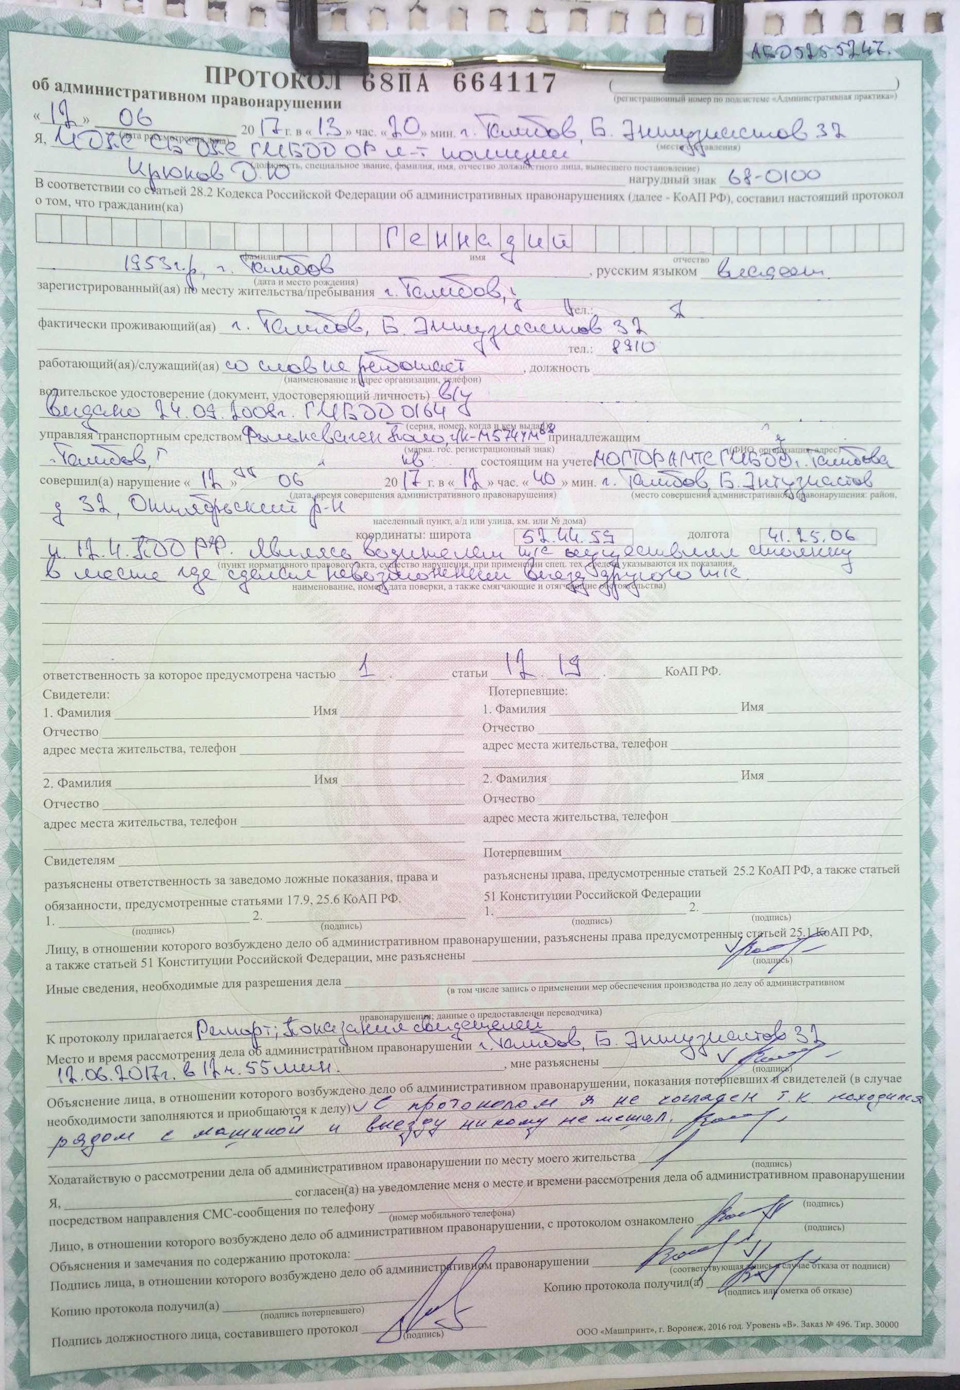 АБ05255247.
ПРОТОКОЛ 68ПА 664117
об административном правонарушении
(регистрационный номер по подсистеме «Административная практика»)
« 12 » 06 20 17 г. в « 13 » час. « 20 » мин. г. Тамбов, Б. Энтузиастов 32
(дата рассмотрения) (место составления)
Я, ИДПС СБ ДПС ГИБДД л-т полиции
(должность, специальное звание, фамилия, имя, отчество должностного лица, вынесшего постановление)
Крюков Д Ю нагрудный знак 68-0100
В соответствии со статьей 28.2 Кодекса Российской Федерации об административных правонарушениях (далее - КоАП РФ), составил настоящий протокол
о том, что гражданин(ка)
Геннадий
фамилия имя отчество
1953г.р, г. Тамбов , русским языком владеет.
(дата и место рождения)
зарегистрированный(ая) по месту жительства/пребывания г. Тамбов,
тел.:
фактически проживающий(ая) г. Тамбов, Б. Энтузиастов 32
тел.: 8910
работающий(ая)/служащий(ая) со слов не работает , должность
(наименование и адрес организации, телефон)
водительское удостоверение (документ, удостоверяющий личность) в/у
выдано 24.09.2008г. ГИБДД 0164
(серия, номер, когда и кем выдан)
управляя транспортным средством Фольксваген Поло, г/н-М574УМ68 принадлежащим
(марка. гос. регистрационный знак) (ФИО, организация, адрес)
г. Тамбов, кв. состоящим на учете МОГТОРАМТС ГИБДД г. Тамбова
совершил(а) нарушение « 12 » 06 20 17 г. в « 12 » час. « 40 » мин. г. Тамбов, Б. Энтузиастов
(дата, время совершения административного правонарушения) (место совершения административного правонарушения: район,
д 32, Октябрьский р-н
населенный пункт, а/д или улица, км. или № дома)
координаты: широта 52.44.59 долгота 41.25.06
п. 12.4. ПДД РФ. Являясь водителем т/с осуществил стоянку
(пункт нормативного правового акта, существо нарушения, при применении спец. тех. средств указываются их показания,
в месте где сделал невозможным выезд другого т/с.
наименование, номер, дата поверки, а также смягчающие и отягчающие обстоятельства)
ответственность за которое предусмотрена частью 1 . статьи 12 . 19 . КоАП РФ.
Свидетели: Потерпевшие:
1. Фамилия Имя 1. Фамилия Имя
Отчество Отчество
адрес места жительства, телефон адрес места жительства, телефон
2. Фамилия Имя 2. Фамилия Имя
Отчество Отчество
адрес места жительства, телефон адрес места жительства, телефон
Свидетелям Потерпевшим
разъяснены ответственность за заведомо ложные показания, права и разъяснены права, предусмотренные статьей 25.2 КоАП РФ, а также статьей
обязанности, предусмотренные статьями 17.9, 25.6 КоАП РФ. 51 Конституции Российской Федерации
1. 2. 1. 2.
(подпись) (подпись) (подпись) (подпись)
Лицу, в отношении которого возбуждено дело об административном правонарушении, разъяснены права предусмотренные статьей 25.1 КоАП РФ,
а также статьей 51 Конституции Российской Федерации, мне разъяснены
(подпись)
Иные сведения, необходимые для разрешения дела
(в том числе запись о применении мер обеспечения производства по делу об административном
правонарушении; данные о предоставлении переводчика)
К протоколу прилагается Рапорт; Показания свидетелей
Место и время рассмотрения дела об административном правонарушении г. Тамбов, Б. Энтузиастов 32
12.06.2017г. в 12ч. 55мин. , мне разъяснены
(подпись)
Объяснение лица, в отношении которого возбуждено дело об административном правонарушении, показания потерпевших и свидетелей (в случае
необходимости заполняются и приобщаются к делу) С протоколом я не согласен т.к находился
рядом с машиной и выезду никому не мешал.
Ходатайствую о рассмотрении дела об административном правонарушении по месту моего жительства
(подпись)
Я, согласен(а) на уведомление меня о месте и времени рассмотрения дела об административном правонарушении
посредством направления СМС-сообщения по телефону
(номер мобильного телефона) (подпись)
Лицо, в отношении которого возбуждено дело об административном правонарушении, с протоколом ознакомлено
(подпись)
Объяснения и замечания по содержанию протокола:
Подпись лица, в отношении которого возбуждено дело об административном правонарушении
(соответствующая запись в случае отказа от подписи)
Копию протокола получил(а) Копию протокола получил(а)
(подпись потерпевшего) (подпись или отметка об отказе)
Подпись должностного лица, составившего протокол
(подпись)
ООО «Машпринт», г. Воронеж, 2016 год. Уровень «В». Заказ № 496. Тир. 30000